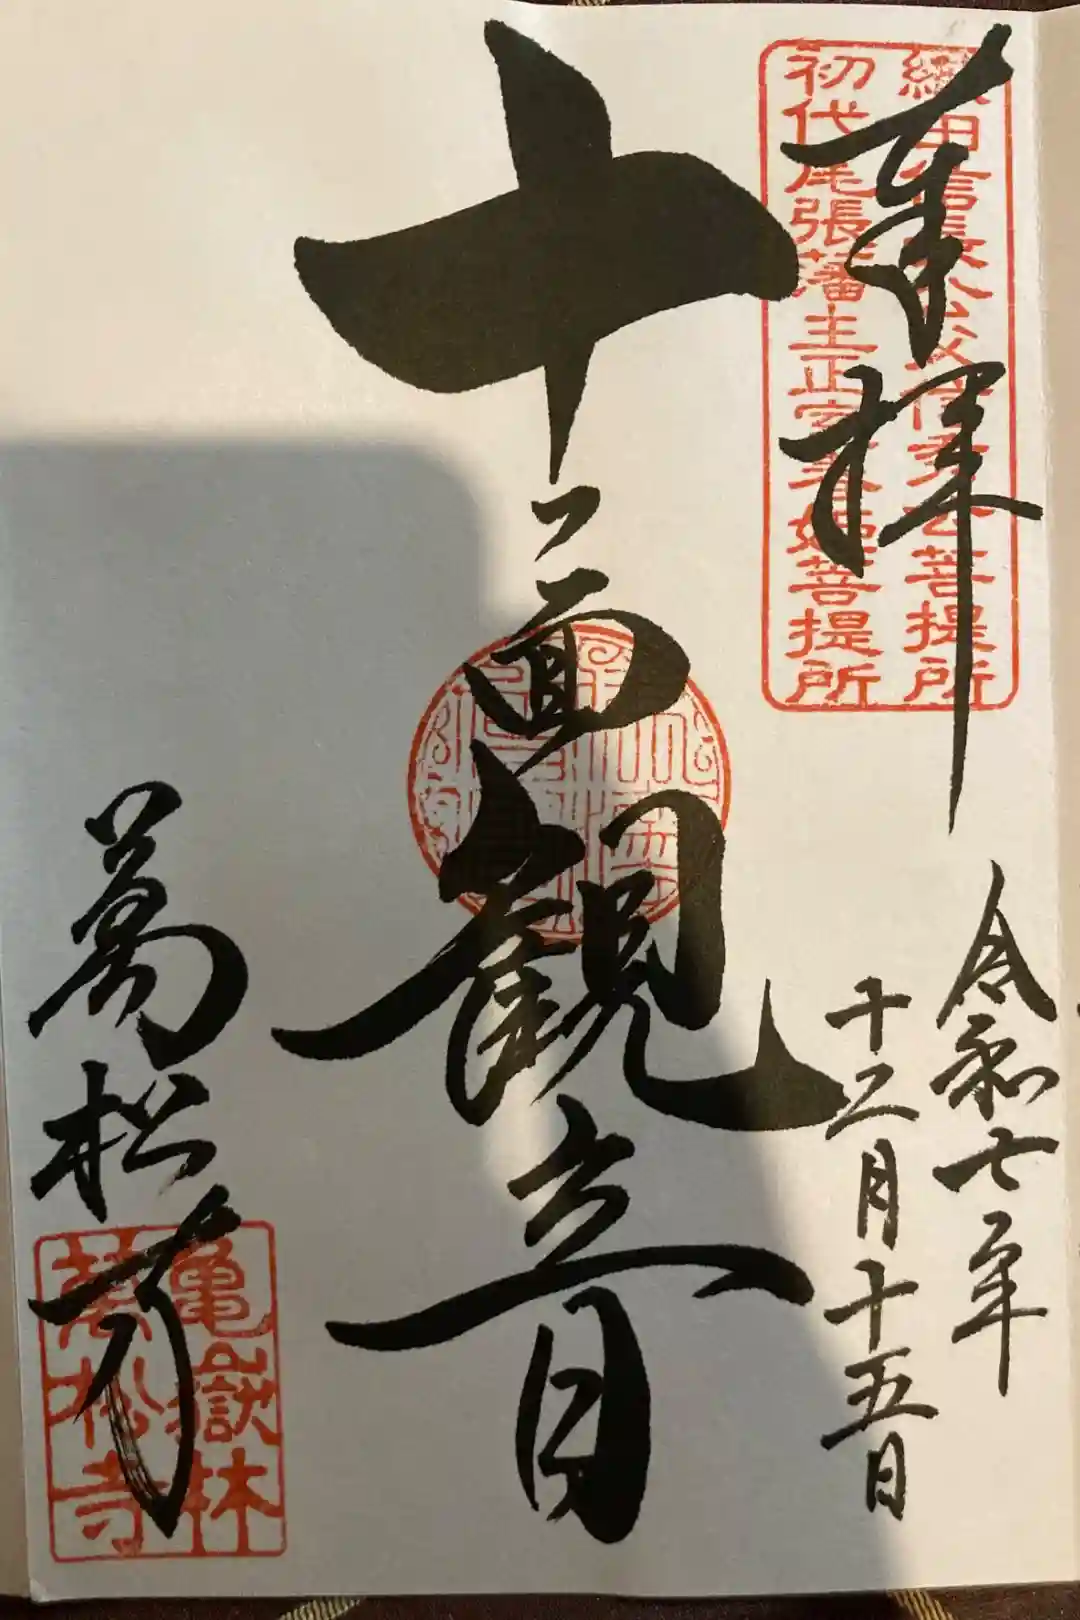 奉拝
織田信長公父信秀公菩提所
初代尾張藩主正室春姫菩提所
令和七年
十二月十五日
十一面観音
萬松寺
亀嶽林
萬松寺